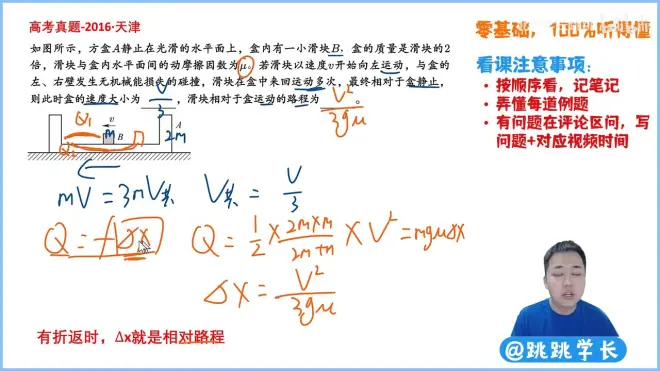 高考真题-2016·天津
零基础，100%听得懂
如图所示，方盒A静止在光滑的水平面上，盒内有一小滑块B，盒的质量是滑块的2
倍，滑块与盒内水平面间的动摩擦因数为μ。若滑块以速度v开始向左运动，与盒的
左、右壁发生无机械能损失的碰撞，滑块在盒中来回运动多次，最终相对于盒静止，
则此时盒的速度大小为 V/3 ，滑块相对于盒运动的路程为 V²/3gμ 。
看课注意事项：
• 按顺序看，记笔记
• 弄懂每道例题
• 有问题在评论区问，写
问题+对应视频时间
Q₁ v m B A 2m
Q₂
mV = 3mV共 V共 = V/3
Q = fΔx Q = 1/2 × 2m×m/2m+m × V² = mgμΔx
Δx = V²/3gμ
有折返时，Δx就是相对路程
@跳跳学长